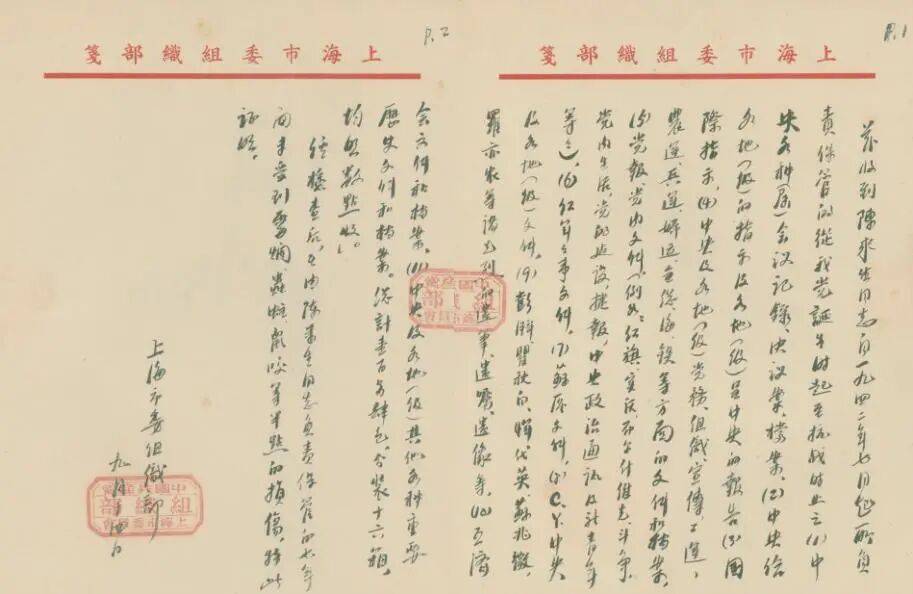 P.1
上海市委組織部箋
兹收到陳來生同志自一九四二年七月起所負
責保管的從我党誕生时起至抗战时止之(1)中
央各科(局)会议记錄、决议案、檔案、(2)中央给
各地(级)的指示及各地(级)呈中央的報告(3)國
際指示、(4)中央及各地(级)党務、组織、宣傳、工運、
農運、兵運、婦运、全总、海、鉄等方面的文件和档案、
(5)党報、党内文件、(例如：红旗、实话、布尔什维克、斗争、
党内生活、党的建设、捷報、中央政治通讯及社青年
等)、(6)红軍軍事文件、(7)苏区文件、(8)C.Y.中央
及各地(级)文件、(9)彭湃、瞿秋白、惲代英、蘇兆徵、
羅亦农等诸先烈的遗筆、遗嘱、遗像等、(10)互濟
P.2
上海市委組織部箋
会文件和档案、(11)中央及各地(级)其他各种重要
歷史文件和档案。总计壹百另肆包、分装十六箱、
均如数點收。
经检查后，由陈來生同志负责保管的七年
间未受到霉烂、蟲蛀、鼠咬等半點的损傷、特此
证明。
上海市委组織部
九月十四日
中國共產黨
組織部
上海市委員會
中國共產黨
組織部
上海市委員會